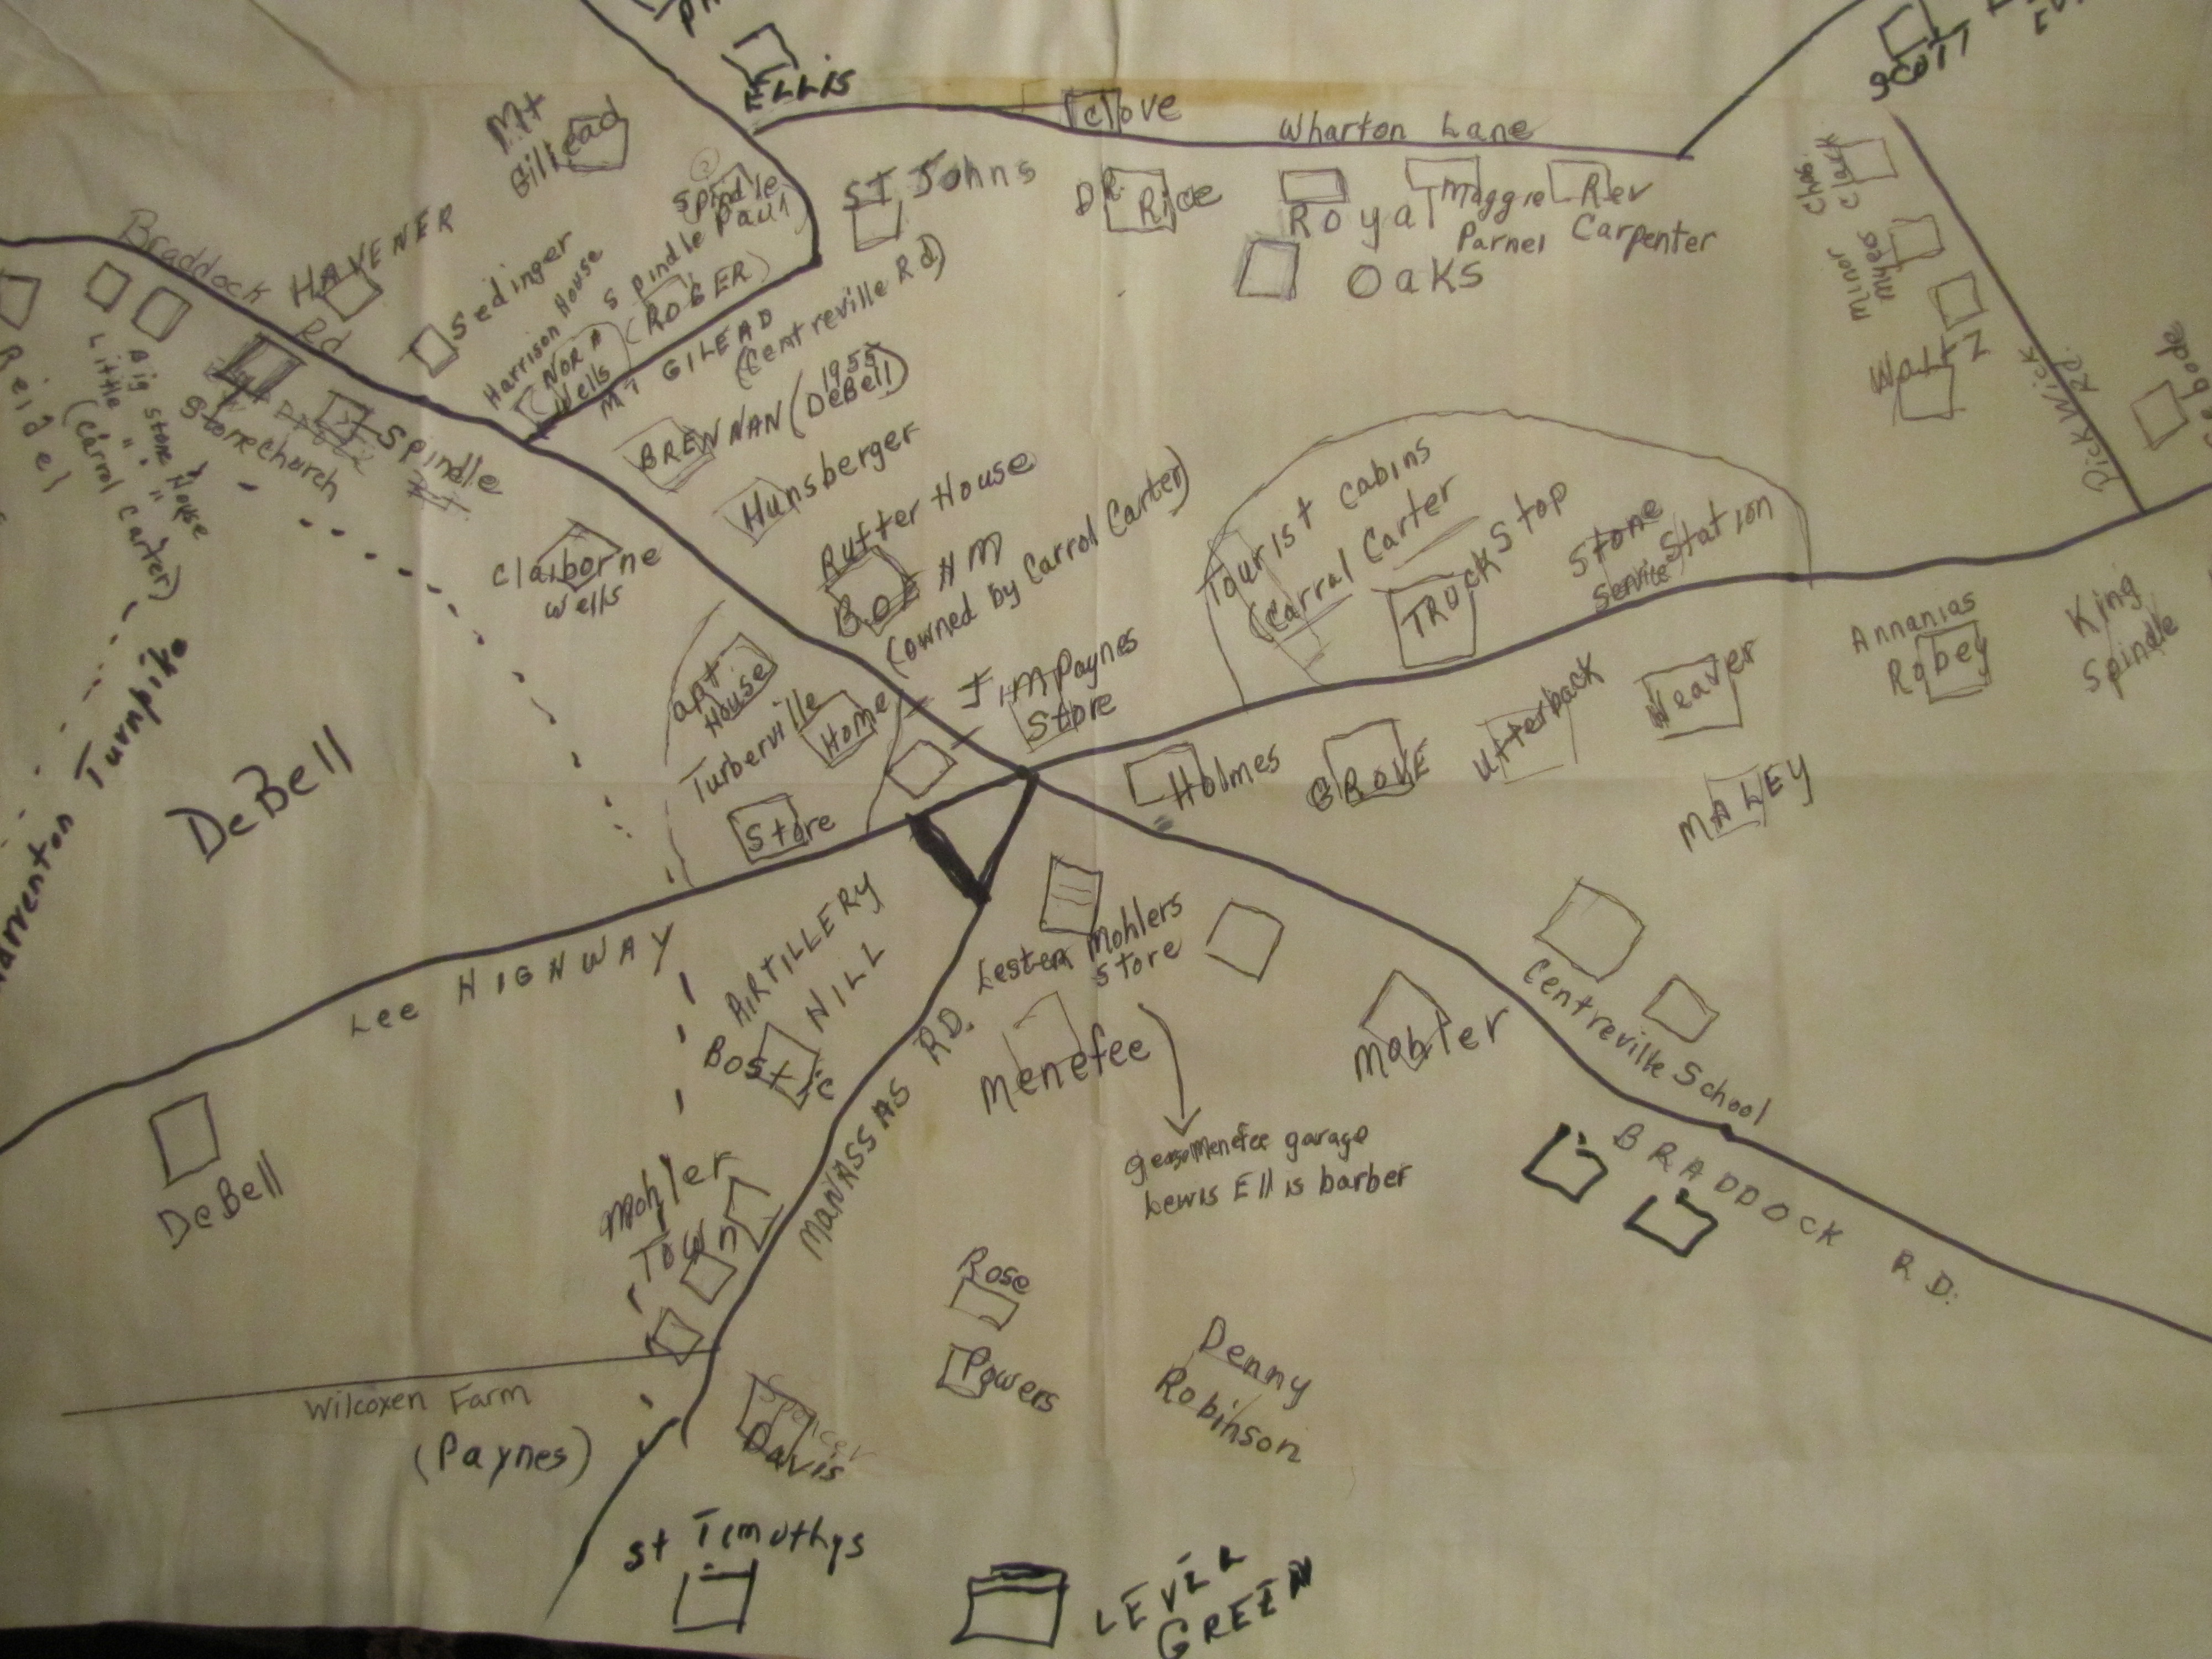 ELLIS
SCOTT
Mt
Gilead
Clove
Wharton Lane
Spindle
Spindle Paul
(ROGER)
ST Johns
DR. Rice
Royal
Oaks
Maggie
Parnel
Rev
Carpenter
Chas. Clark
Minor Myes
Wattz
Dick Wick
Rd.
Braddock
Rd
HAVENER
Sedinger
Harrison House
NORA
Wells
MT GILEAD
(Centreville Rd)
Reidel
Big stone House
Little " "
(Carrol Carter)
Stone church
Spindle
BRENNAN (DeBell)
1955
Hunsberger
Rutter House
BOEHM
(owned by Carrol Carter)
Claiborne
Wells
Tourist cabins
(Carral Carter
TRUCK Stop
Stone
Service Station
Annanias
Robey
King
Spindle
apt
House
Turberville
Home
Store
Jim Paynes
Store
Holmes
GROVE
Utterback
Weaver
MALEY
Turnpike
DeBell
Lee HIGHWAY
ARTILLERY
HILL
Bostic
Lester Mohlers
Store
Menefee
Mohler
Centreville School
MANASSAS RD.
Menefee garage
Lewis Ellis barber
BRADDOCK RD.
DeBell
Mohler
Town
Rose
Powers
Denny
Robinson
Wilcoxen Farm
(Paynes)
Spencer
Davis
St Timothys
LEVEL
GREEN